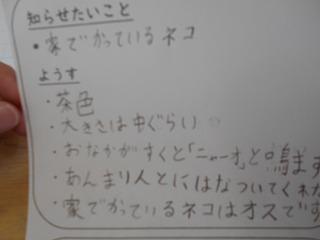 知らせたいこと
・家でかっているネコ
ようす
・茶色
・大きさは中ぐらい
・おなかがすくと「ニャーオ」と鳴ます
・あんまり人とにはなついてくれ
・家でかっているネコはオスです